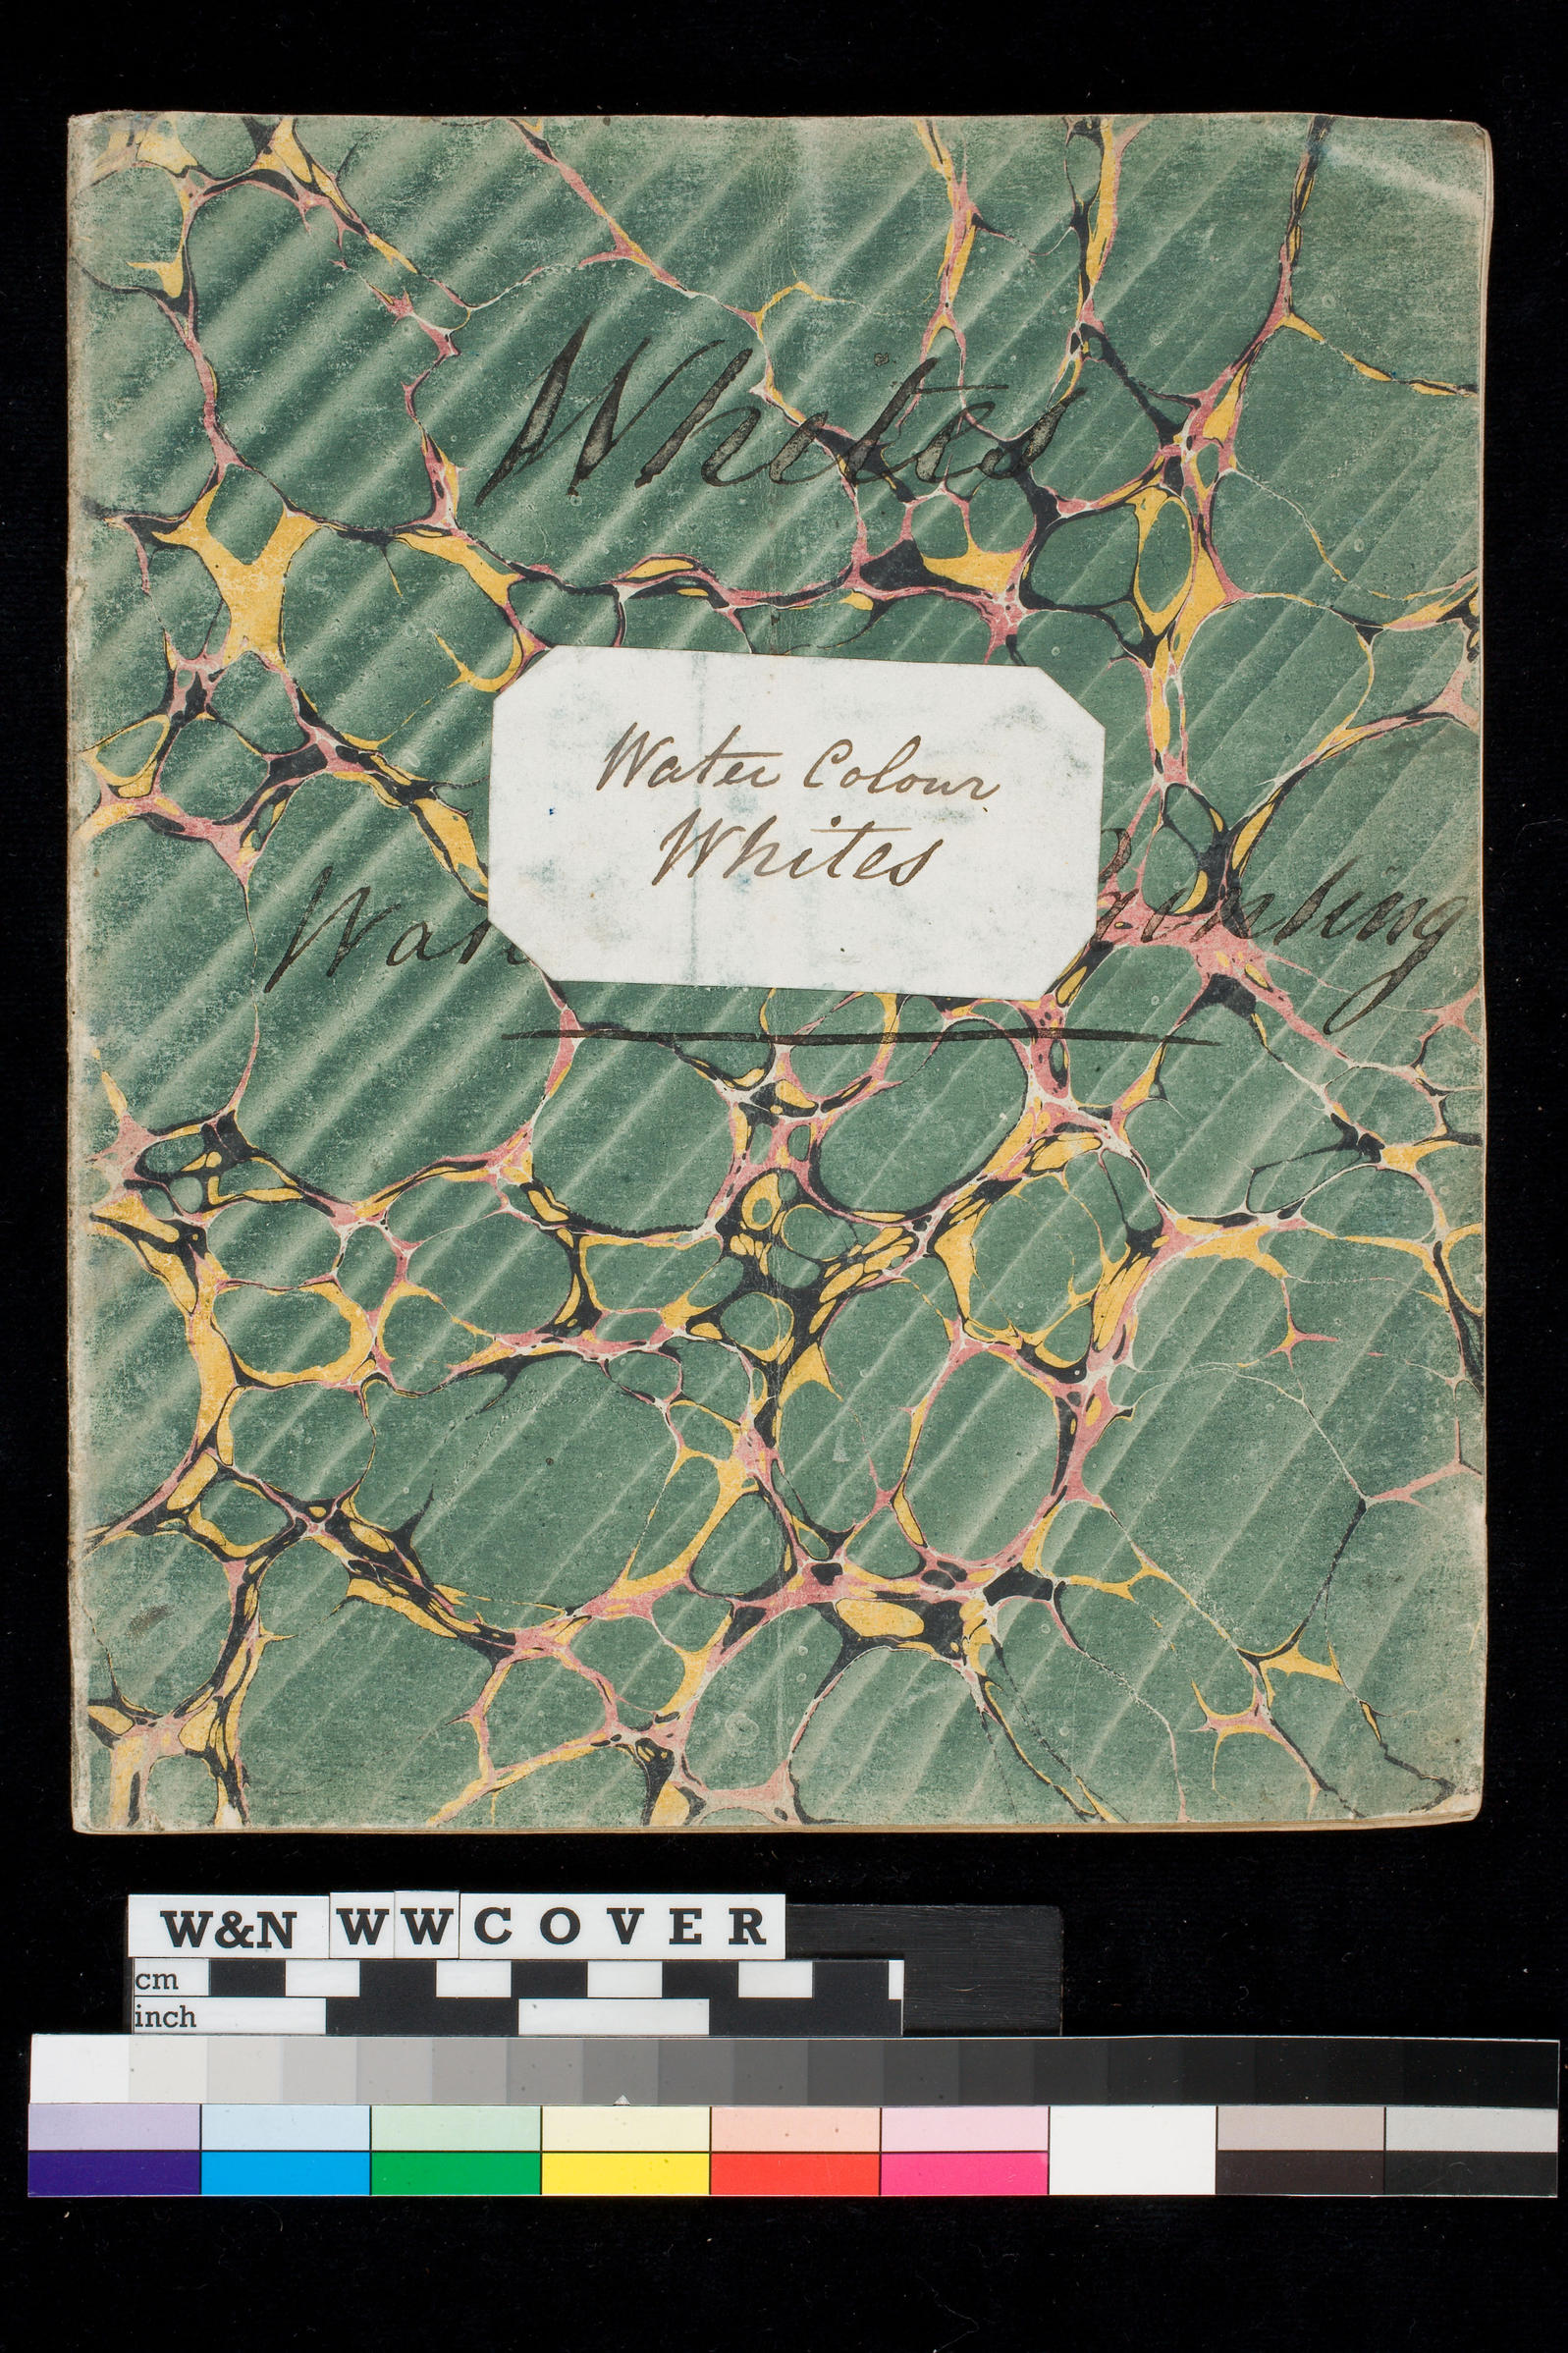 Whites
Water Colour
Whites
Painting
W&N WWCOVER
cm
inch